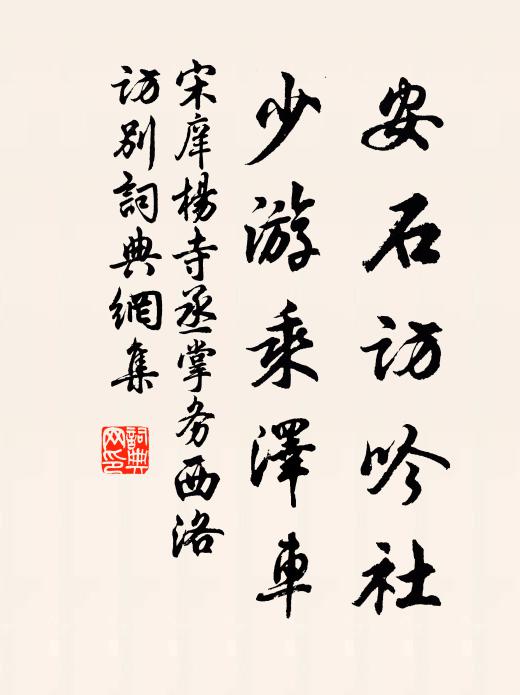 安石访吟社
少游乘澤車
宋庠楊寺丞掌务西洛
访别詞典網集
詞典网印